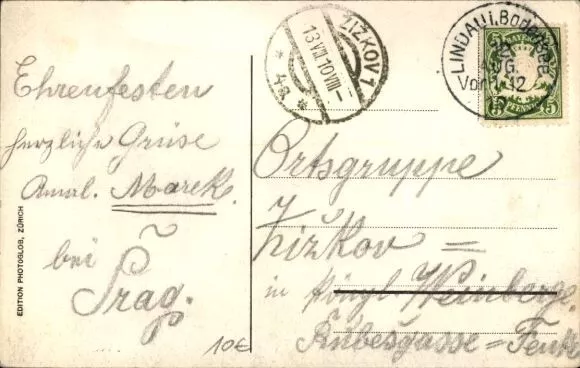 Ehrenfesten
herzliche Grüse
Amal. Marek.
bei
Prag.
EDITION PHOTOGLOB, ZÜRICH
10€
ŽIŽKOV 1
13 VII 10 VIII-
* 4a *
LINDAU i. Bodensee
AUG.
Vor. 12
BAYERN
5 5
PFENNIG
5 5
Ortsgruppe
Žižkov =
in Königl Weinberge
=